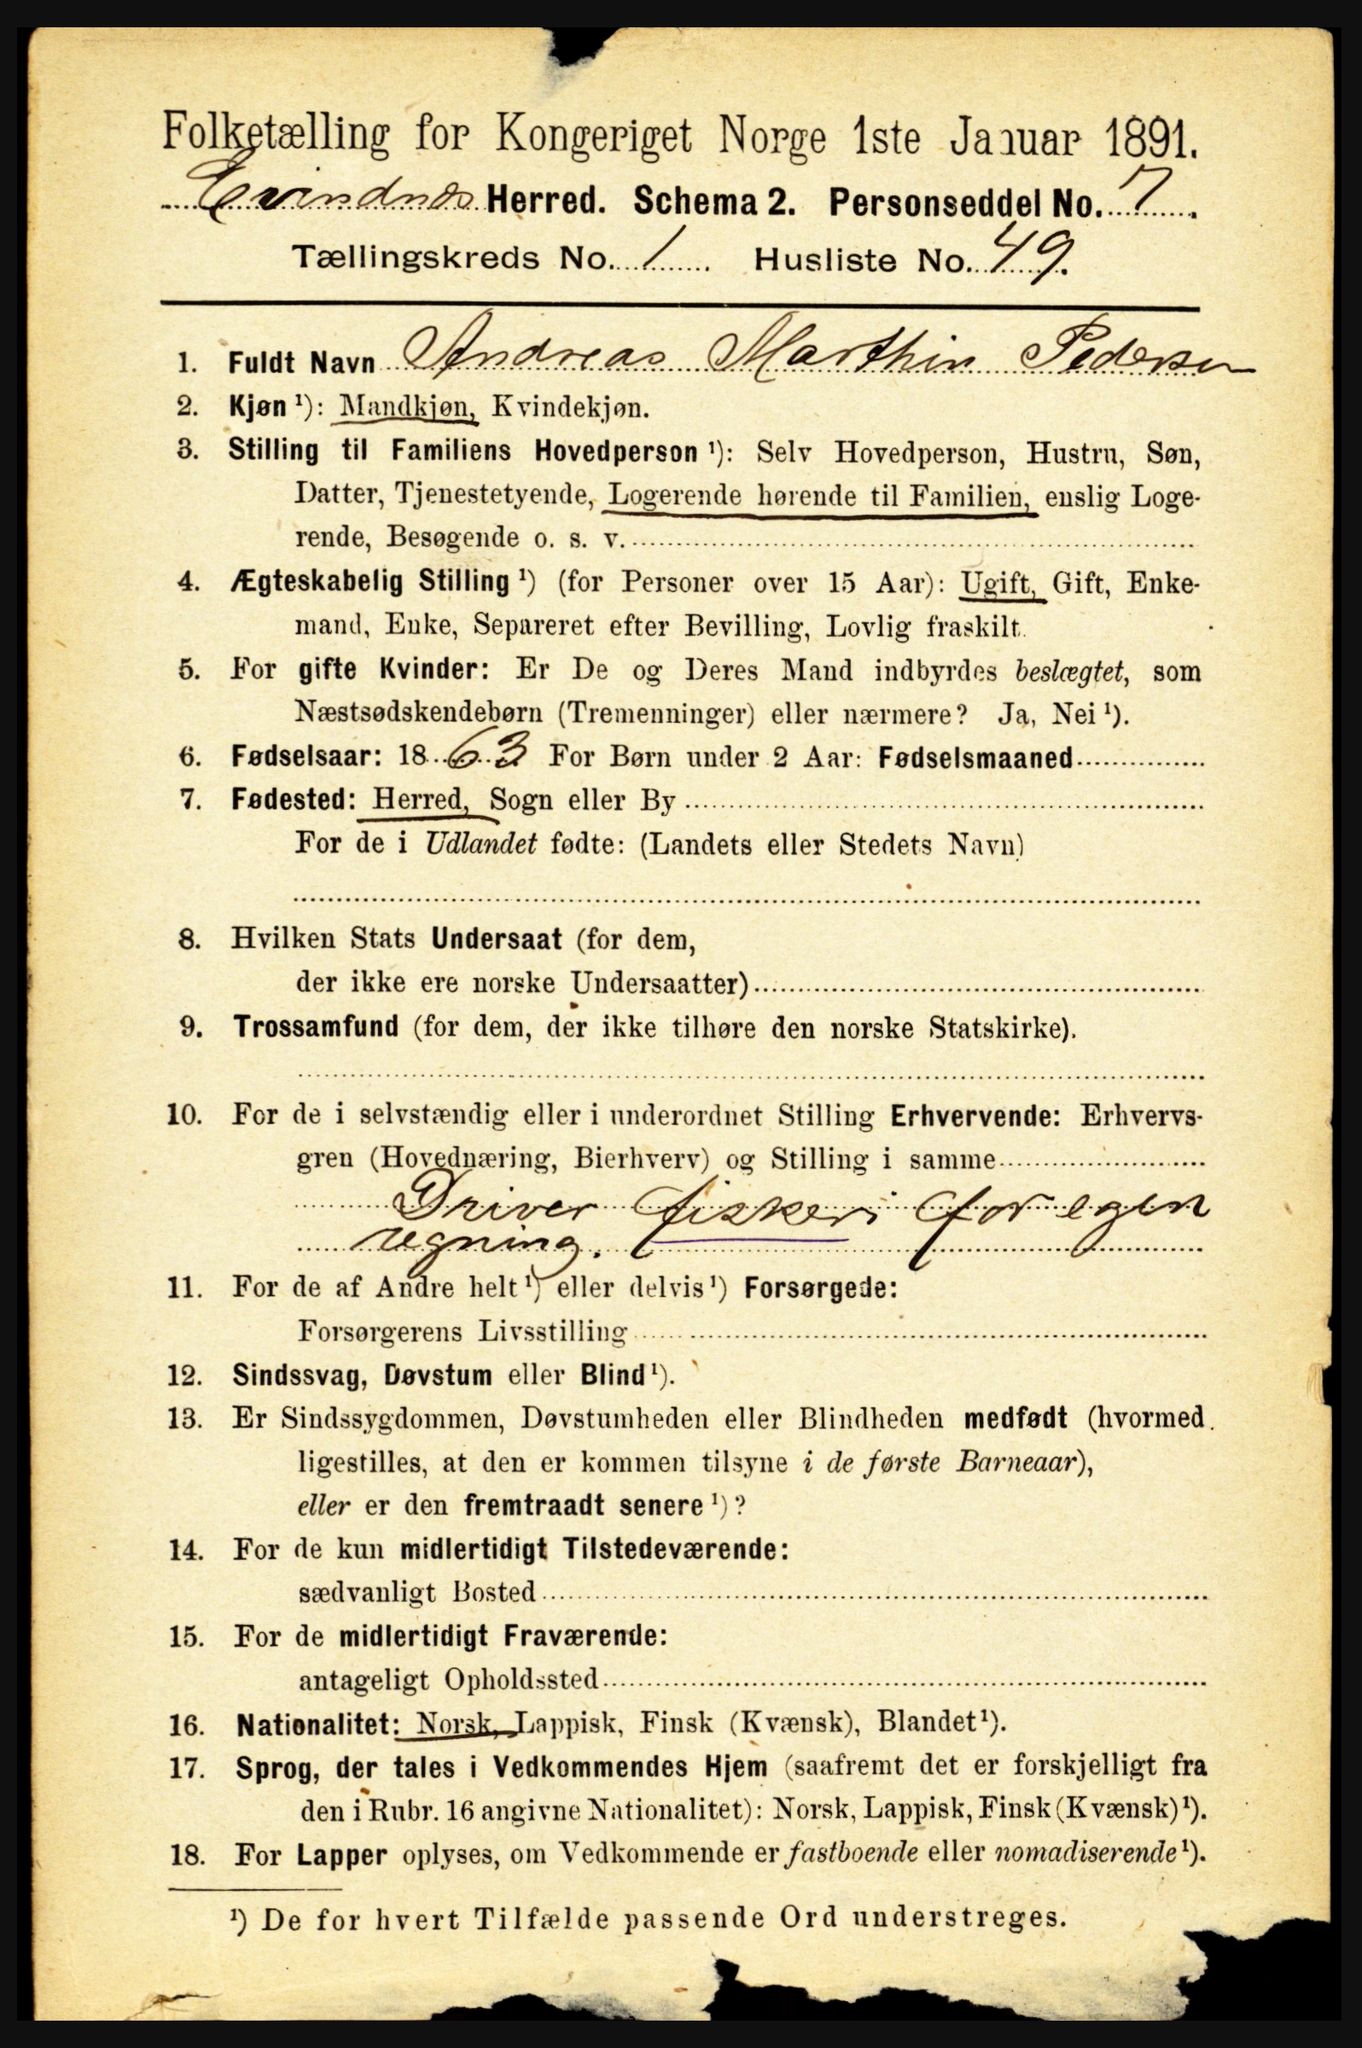 Folketælling for Kongeriget Norge 1ste Januar 1891.
Evindnes Herred. Schema 2. Personseddel No. 7.
Tællingskreds No. 1 Husliste No. 49.
1. Fuldt Navn Andreas Marthin Pedersen
2. Kjøn ¹): Mandkjøn, Kvindekjøn.
3. Stilling til Familiens Hovedperson ¹): Selv Hovedperson, Hustru, Søn,
Datter, Tjenestetyende, Logerende hørende til Familien, enslig Loge-
rende, Besøgende o. s. v.
4. Ægteskabelig Stilling ¹) (for Personer over 15 Aar): Ugift, Gift, Enke-
mand, Enke, Separeret efter Bevilling, Lovlig fraskilt.
5. For gifte Kvinder: Er De og Deres Mand indbyrdes beslægtet, som
Næstsødskendebørn (Tremenninger) eller nærmere? Ja, Nei ¹).
6. Fødselsaar: 1863 For Børn under 2 Aar: Fødselsmaaned
7. Fødested: Herred, Sogn eller By
For de i Udlandet fødte: (Landets eller Stedets Navn)
8. Hvilken Stats Undersaat (for dem,
der ikke ere norske Undersaatter)
9. Trossamfund (for dem, der ikke tilhøre den norske Statskirke).
10. For de i selvstændig eller i underordnet Stilling Erhvervende: Erhvervs-
gren (Hovednæring, Bierhverv) og Stilling i samme
Driver fiskeri for egen
regning.
11. For de af Andre helt ¹) eller delvis ¹) Forsørgede:
Forsørgerens Livsstilling
12. Sindssvag, Døvstum eller Blind ¹).
13. Er Sindssygdommen, Døvstumheden eller Blindheden medfødt (hvormed
ligestilles, at den er kommen tilsyne i de første Barneaar),
eller er den fremtraadt senere ¹)?
14. For de kun midlertidigt Tilstedeværende:
sædvanligt Bosted
15. For de midlertidigt Fraværende:
antageligt Opholdssted
16. Nationalitet: Norsk, Lappisk, Finsk (Kvænsk), Blandet ¹).
17. Sprog, der tales i Vedkommendes Hjem (saafremt det er forskjelligt fra
den i Rubr. 16 angivne Nationalitet): Norsk, Lappisk, Finsk (Kvænsk) ¹).
18. For Lapper oplyses, om Vedkommende er fastboende eller nomadiserende ¹).
¹) De for hvert Tilfælde passende Ord understreges.